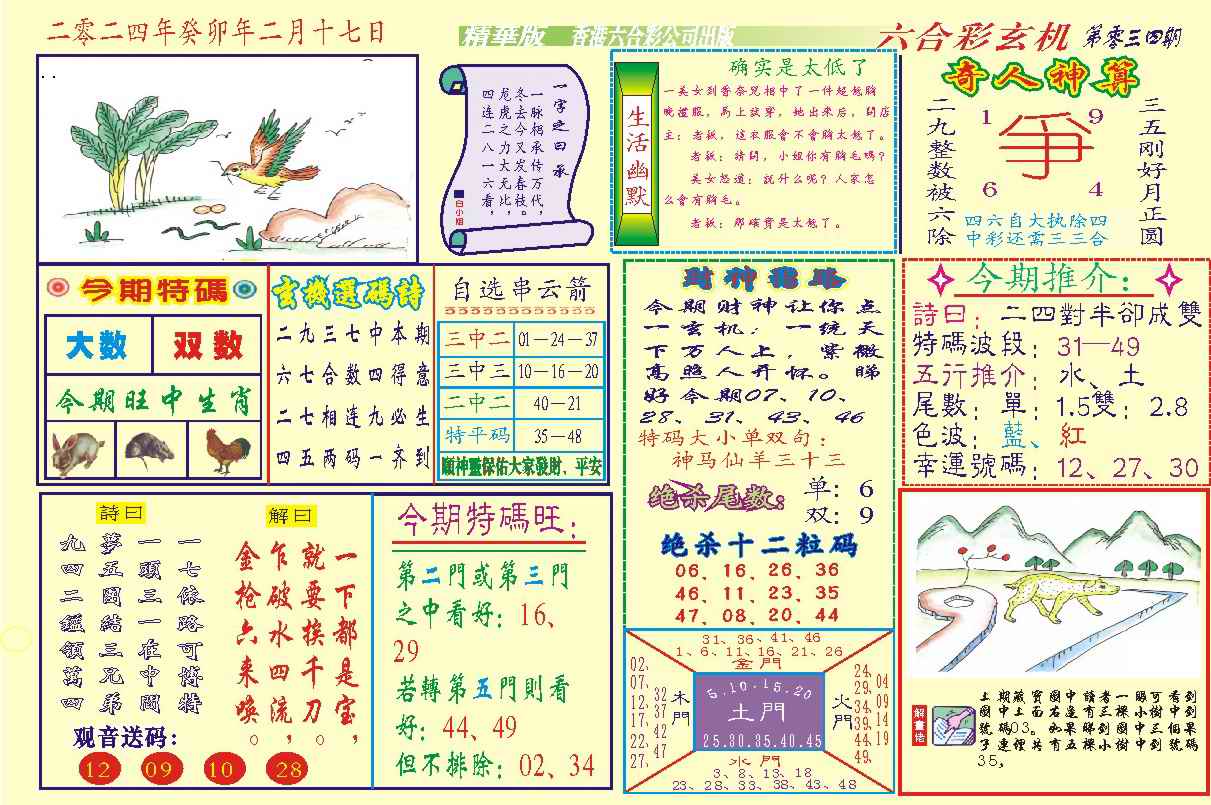 二零二四年癸卯年二月十七日
精華版 香港六合彩公司出版
六合彩玄机 第零三四期
一字之曰承
一脉相承传万代，
冬去今又发春枝。
龙虎之力大无比，
四连二八一六看，
白小姐
生活幽默
确实是太低了
一美女到香奈兒相中了一件超低胸
晚禮服，馬上試穿，她出来后，問店
主：老板，這衣服會不會胸太低了。
老板：請問，小姐你有胸毛嗎？
美女怒道：說什么呢？人家怎
么會有胸毛。
老板：那確實是太低了。
奇人神算
三五刚好月正圆
二九整数被六除
1 9
爭
6 4
四六自大执除四
中彩还需三三合
今期特碼
大数 双数
今期旺中生肖
玄機選碼詩
二九三七中本期
六七合数四得意
二七相连九必生
四五两码一齐到
自选串云箭
三中二 01—24—37
三中三 10—16—20
二中二 40—21
特平码 35—48
願神靈保佑大家發財、平安
財神指路
今期财神让你点
一玄机：一统天
下万人上，紫微
高照人开怀。睇
好今期07、10、
28、31、43、46
特码大小单双句：
神马仙羊三十三
绝杀尾数： 单：6
双：9
绝杀十二粒码
06、16、26、36
46、11、23、35
47、08、20、44
今期推介：
詩曰：二四對半卻成雙
特碼波段：31—49
五行推介：水、土
尾數：單：1.5雙：2.8
色波：藍、紅
幸運號碼：12、27、30
詩曰
一七依路可博特
一頭三一在中間
夢五圈結三兄弟
九四二繼領萬四
解曰
一下都是宝，
就要挨千刀。
乍破水四流，
金抢六来唤。
观音送码：
12 09 10 28
今期特碼旺：
第二門或第三門
之中看好：16、
29
若轉第五門則看
好：44、49
但不排除：02、34
31、36、41、46
1、6、11、16、21、26
金門
02、
07、
12、32
17、37
22、42
27、47
木門
5.10.15.20
土門
25.30.35.40.45
火門
24、04
29、09
34、14
39、19
44、
49、
水門
3、8、13、18
23、28、33、38、43、48
解畫佬
上期藏寶圖中讀者一眼可看到
圖中上面右邊有三棵小樹中到
號碼03。如果睇到圖中三個果
子連埋共有五棵小樹中到號碼
35，